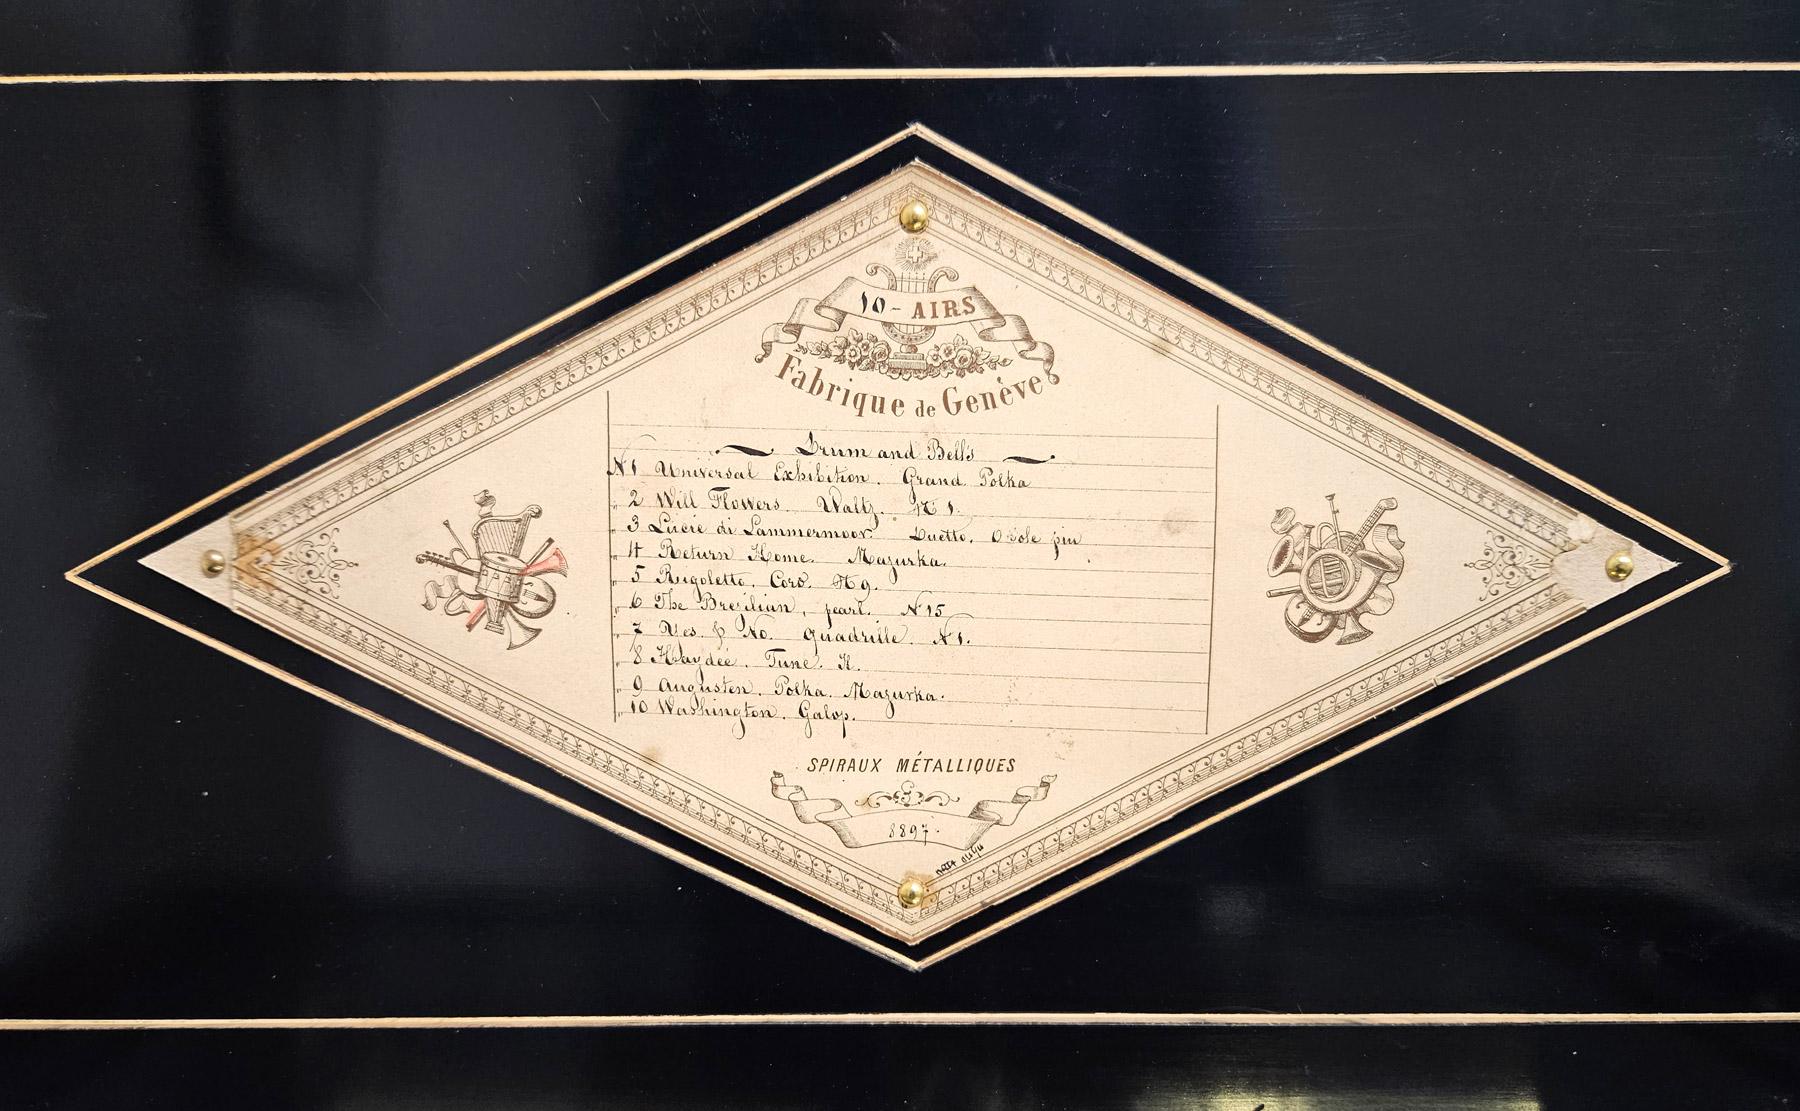 10 - AIRS
Fabrique de Genève
Drum and Bell's
N 1 Universal Exhibition. Grand Polka
" 2 Will Flowers. Waltz. N 1.
" 3 Lucie di Lammermoor Duetto. O sole piu
" 4 Return Home. Mazurka.
" 5 Rigoletto. Coro. N 9.
" 6 The Bresilian, pearl. N 15
" 7 Yes & No. Quadrille. N 1.
" 8 Haydée. Tune
" 9 Augusten. Polka. Mazurka.
" 10 Washington. Galop.
SPIRAUX MÉTALLIQUES
8897.